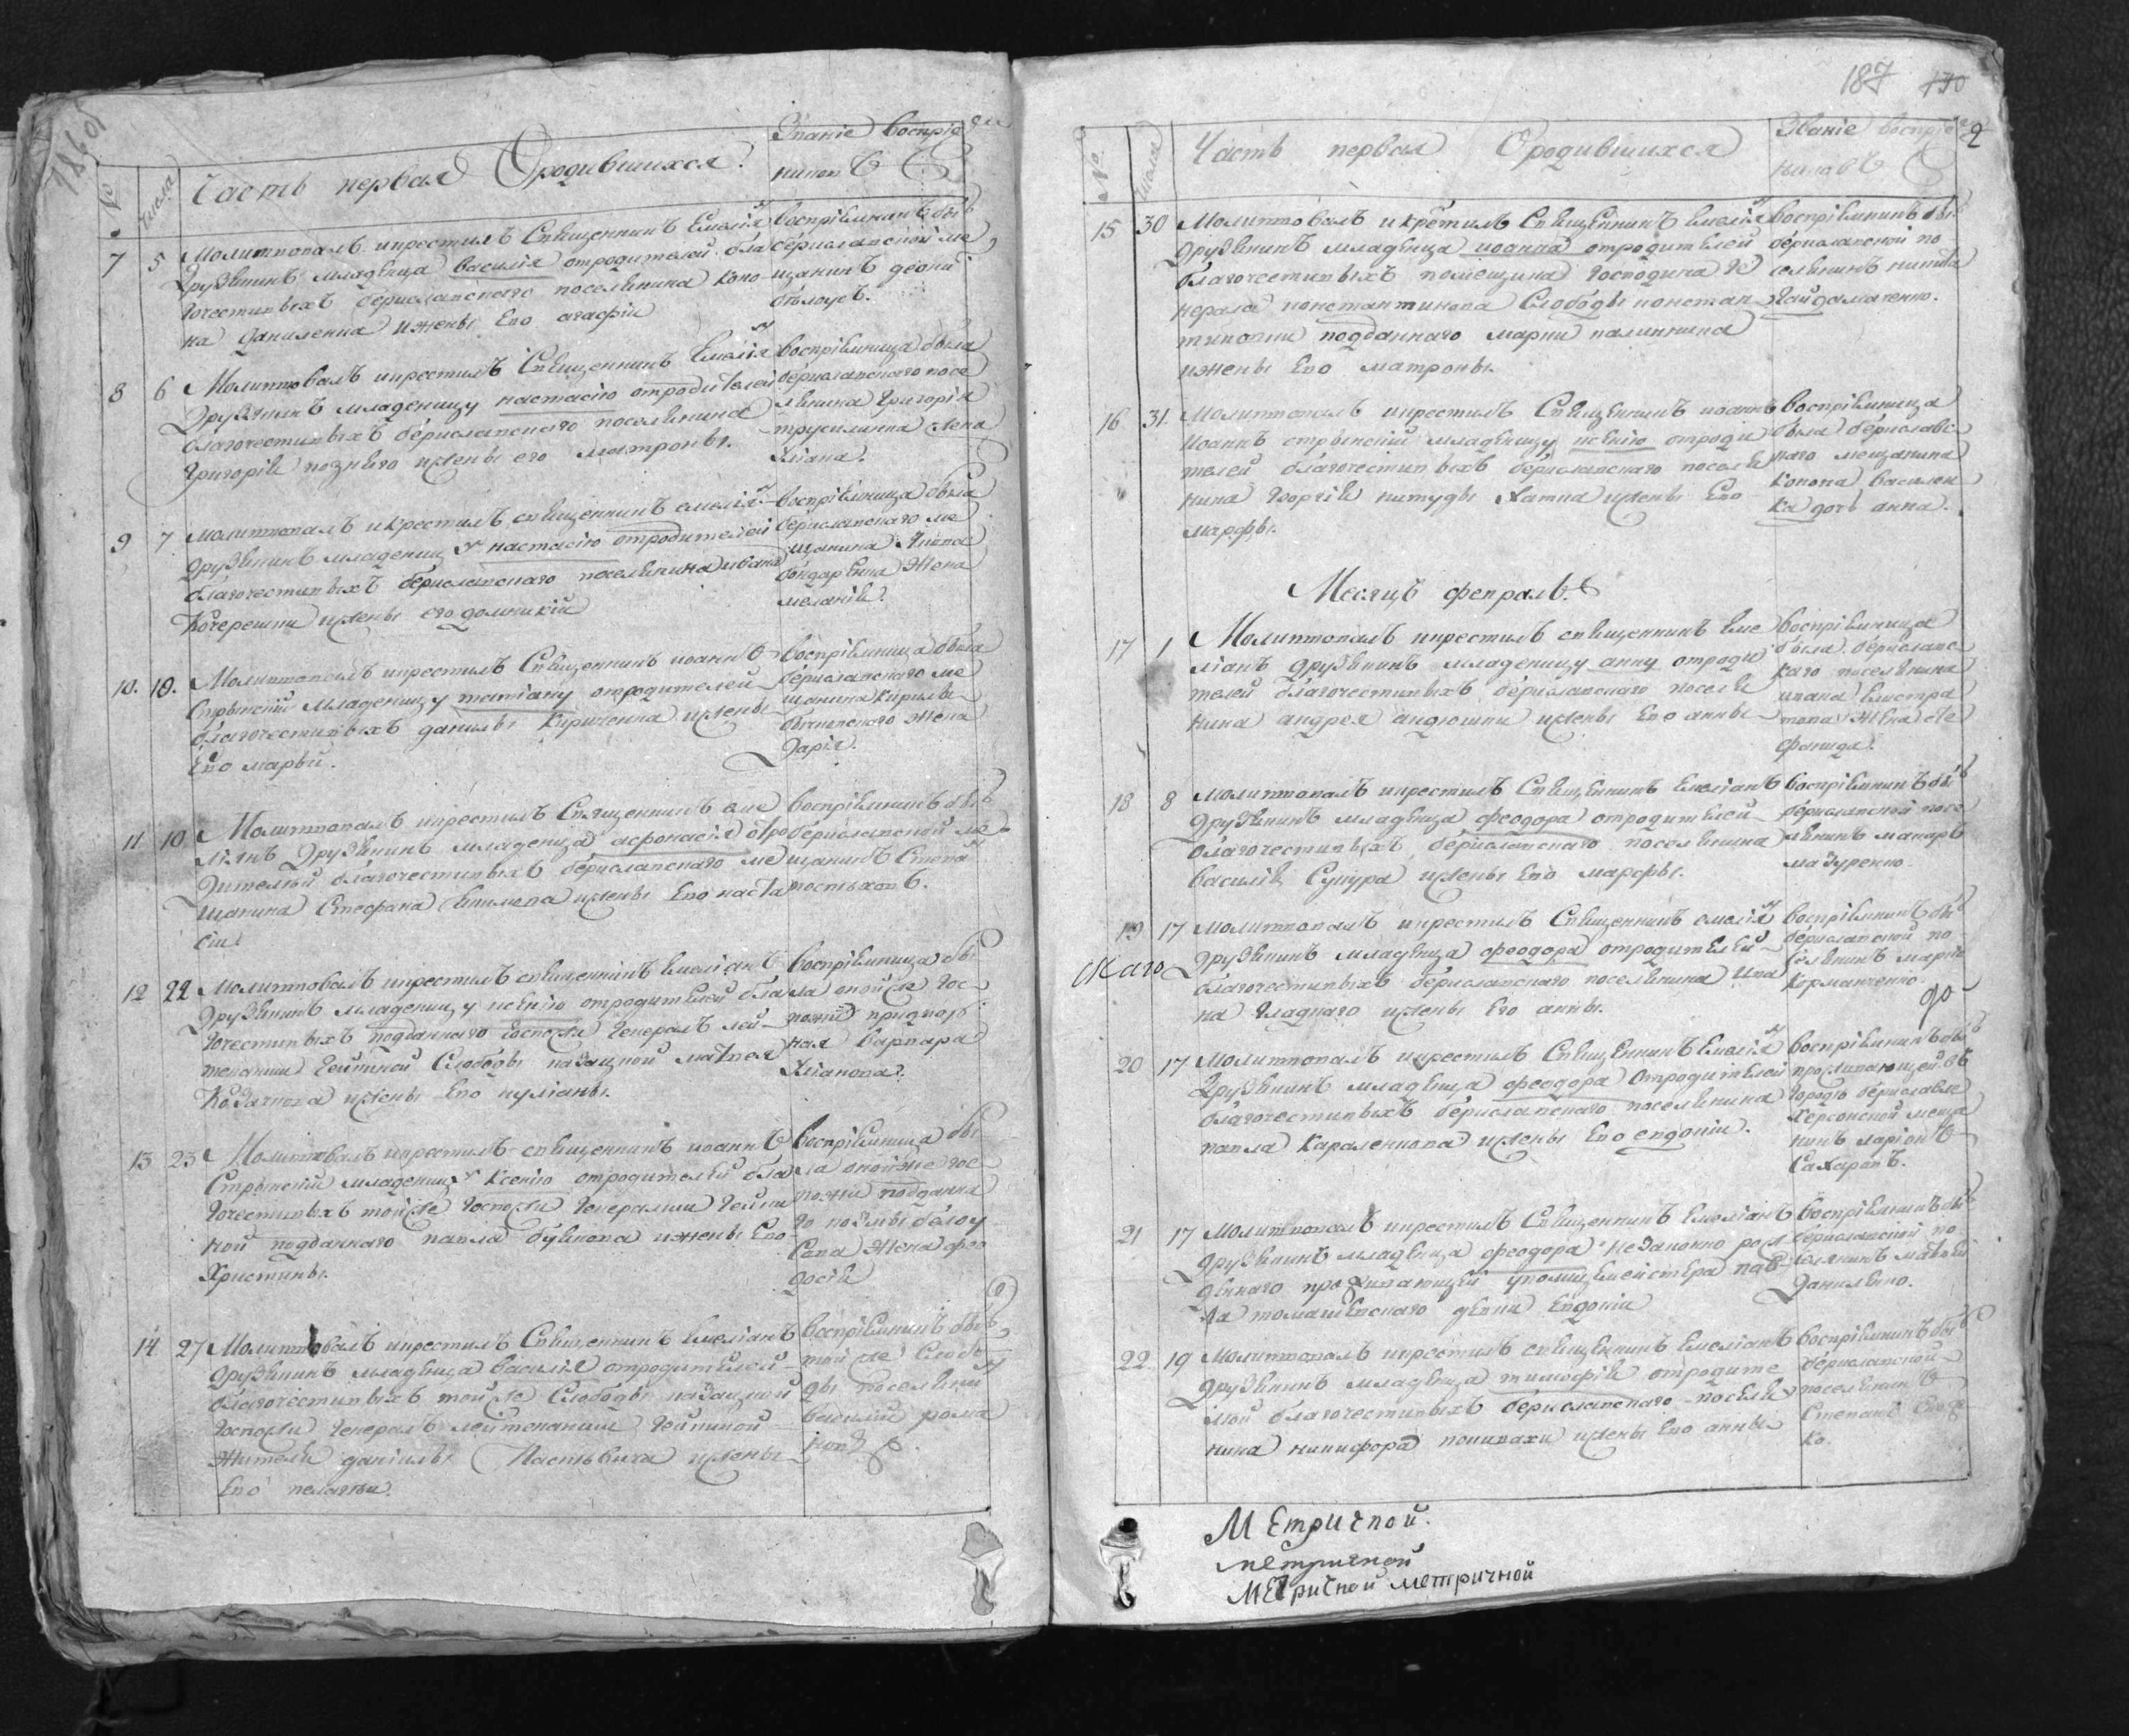 №
числа
Часть первая О родившихся.
Званіе воспріе
никовъ
7 5 Молитвовалъ икрестилъ Священникъ Емеліа
Друзѣнинъ младенца василія отродителей бла
гочестивыхъ бериславскаго поселянина коно
на даниленка ижены Его агафіи
воспріемникъ былъ
бериславской ме
щанинъ
бѣлоусъ.
8 6 Молитвовалъ икрестилъ Священникъ Емеліа
Друзѣнинъ младеницу настасію отродителей
благочестивыхъ бериславскаго поселянина
григорія ижены его матроны.
воспріемница была
бериславскаго посе
лянина григорія
жена
9 7 Молитвовалъ икрестилъ священникъ емеліа
друзѣнинъ младеницу настасію отродителей
благочестивыхъ бериславскаго поселянина ивана
Кочерешки ижены его домникіи
воспріемница была
бериславскаго ме
щанина
бондаренка жена
меланія.
10. 10. Молитвовалъ икрестилъ Священникъ иоаннъ
Стрынскій младеницу татіану отродителей
благочестивыхъ данилы Кириченка ижены
Его марѳы.
воспріемница была
бериславскаго ме
щанина кирилы
жена
Дарія.
11 10 Молитвовалъ икрестилъ Священникъ еме
ліянъ Друзѣнинъ младенца афонасія отро
дителей благочестивыхъ бериславскаго ме
щанина Стефана ижены Его наста
сіи
воспріемникъ былъ
бериславской ме
щанинъ Степанъ
костюковъ.
12 22 Молитвовалъ икрестилъ священникъ Емеліанъ
Друзѣнинъ младеницу ксенію отродителей бла
гочестивыхъ подданнаго Госпожи Генералъ лей
тенанши Гейкиной Слободы казацкой матвея
Козачкова ижены Его иуліаны.
воспріемница бы
ла оной же гос
пожи
варвара
13 23 Молитвовалъ икрестилъ священникъ иоаннъ
Стрынскій младеницу ксенію отродителей бла
гочестивыхъ той же Госпожи Генеральши Гейки
ной подданнаго павла ижены Его
Христины.
воспріемница бы
ла оной же гос
пожи поддана
го козмы белоу
сова жена фео
досія
14 27 Молитвовалъ икрестилъ Священникъ Емеліанъ
Друзѣнинъ младенца василія отродителей
благочестивыхъ той же Слободы казацкой
госпожи Генералъ лейтенанши Гейкиной
жителя данилы ижены
Его пелагеи.
воспріемникъ былъ
той же Слобо
ды поселянин
василій рома
новъ
187 170
2
№
числа
Часть первая О родившихся
Званіе воспріе
никовъ
15 30 Молитвовалъ икрестилъ Священникъ Емеліа
Друзѣнинъ младенца иоанна отродителей
благочестивыхъ помещика господина ге
нерала константинова Слободы констан
тиновки подданнаго марка калинкина
ижены Его матроны.
воспріемникъ былъ
бериславской по
селянинъ никита
Гайдамаченко.
16 31. Молитвовалъ икрестилъ Священникъ иоаннъ
Иоаннъ стрынскій младеницу ксенію отроди
телей благочестивыхъ бериславскаго поселя
нина георгія ижены Его
марфы.
воспріемница
была бериславс
каго мещанина
Конона василен
ка дочь анна.
Месяцъ февраль.
17 1 Молитвовалъ икрестилъ священникъ Еме
ліанъ друзѣнинъ младеницу анну отроди
телей благочестивыхъ бериславскаго поселя
нина андрея андюшки ижены Его анны
воспріемница
была бериславс
каго поселянина
ивана Елистра
това жена сте
фанида.
18 8 Молитвовалъ икрестилъ Священникъ Емеліанъ
Друзѣнинъ младенца феодора отродителей
благочестивыхъ бериславскаго поселянина
василія ижены Его марфы.
воспріемникъ былъ
бериславской посе
лянинъ макаръ
мазуренко
19 17 Молитвовалъ икрестилъ Священникъ емеліа
Друзѣнинъ младенца феодора отродителей
благочестивыхъ бериславскаго поселянина ива
на гладкаго ижены Его анны.
воспріемникъ былъ
бериславской по
селянинъ марко
корманченко
20 17 Молитвовалъ икрестилъ Священникъ Емеліа
Друзѣнинъ младенца феодора отродителей
благочестивыхъ бериславскаго поселянина
павла Караленкова ижены Его евдокіи.
воспріемникъ былъ
проживающей въ
городе бериславле
херсонской меща
нинъ ларіонъ
Сахаровъ.
21 17 Молитвовалъ икрестилъ Священникъ Емеліанъ
Друзѣнинъ младенца феодора незаконно рож
деннаго проживающей
ла томашевскаго девки Евдокіи
воспріемникъ былъ
бериславской по
селянинъ матвей
Даниленко.
22 19 Молитвовалъ икрестилъ священникъ Емеліанъ
Друзѣнинъ младенца тимофѣя отродите
лей благочестивыхъ бериславскаго поселя
нина никифора ижены Его анны
воспріемникъ былъ
бериславской
поселянинъ
Степанъ
ко.
Метричной.
метричной
Метричной метричной